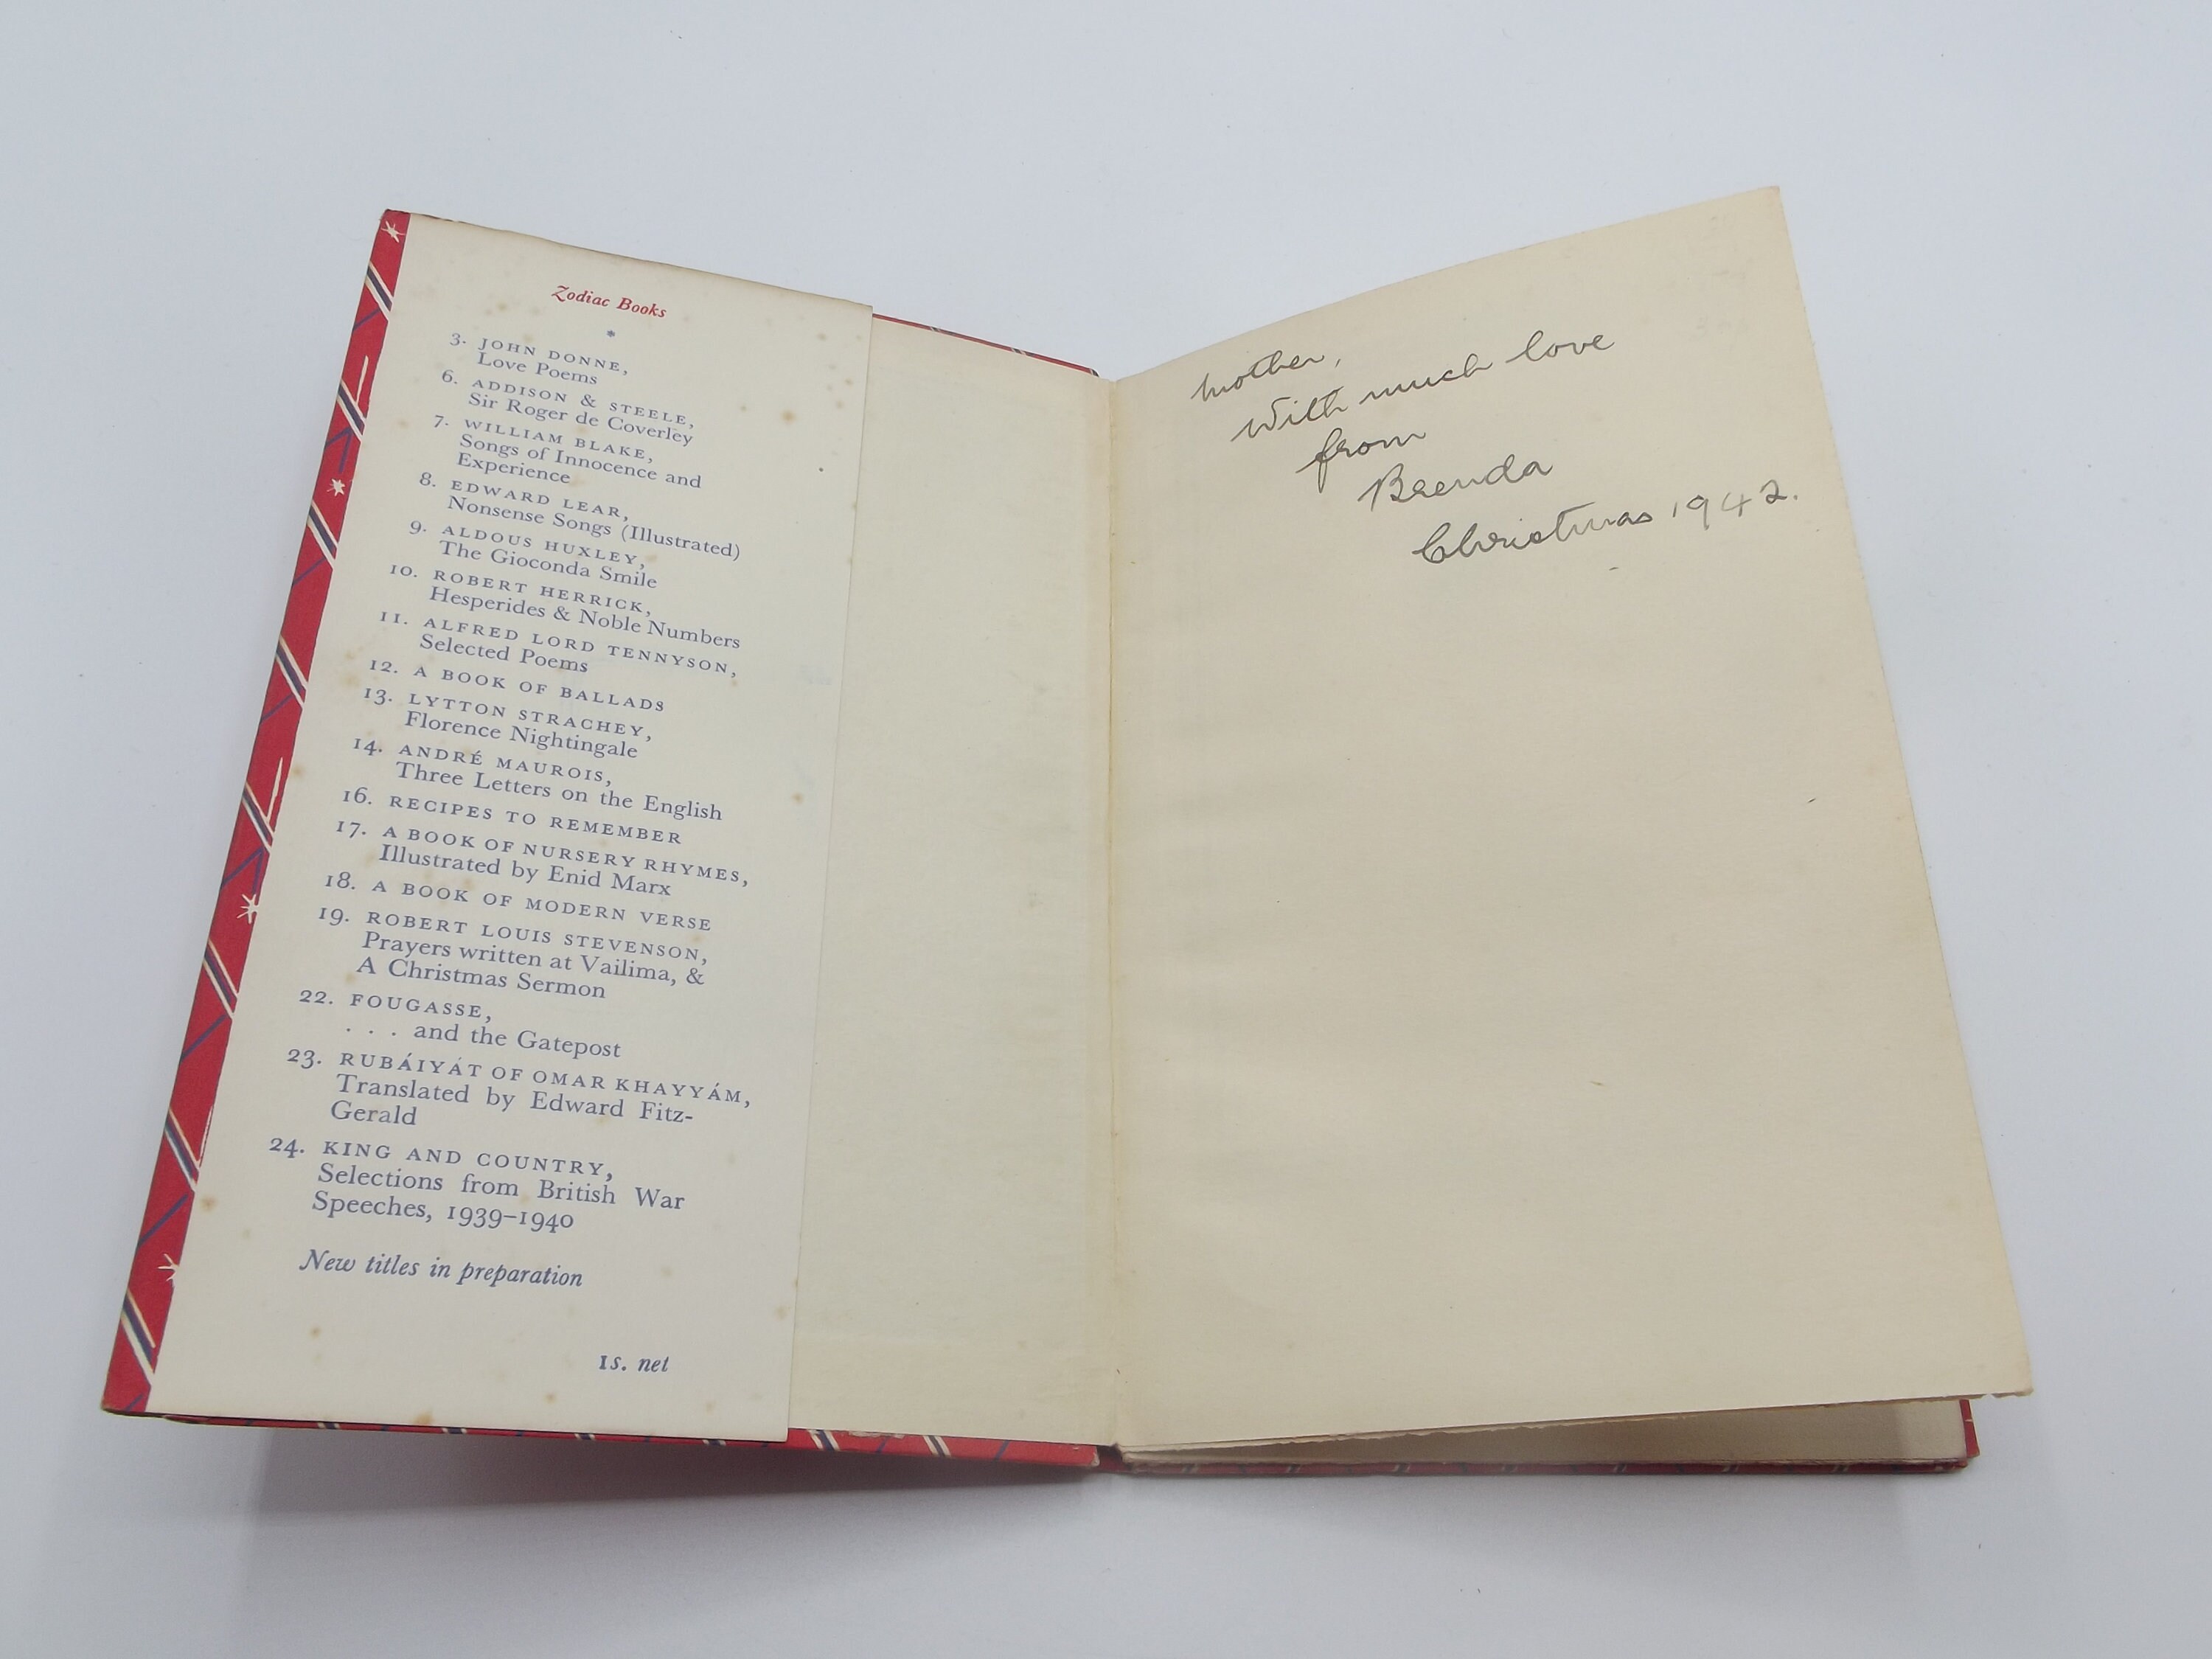 Zodiac Books
*
3. JOHN DONNE,
Love Poems
6. ADDISON & STEELE,
Sir Roger de Coverley
7. WILLIAM BLAKE,
Songs of Innocence and
Experience
8. EDWARD LEAR,
Nonsense Songs (Illustrated)
9. ALDOUS HUXLEY,
The Gioconda Smile
10. ROBERT HERRICK,
Hesperides & Noble Numbers
11. ALFRED LORD TENNYSON,
Selected Poems
12. A BOOK OF BALLADS
13. LYTTON STRACHEY,
Florence Nightingale
14. ANDRÉ MAUROIS,
Three Letters on the English
16. RECIPES TO REMEMBER
17. A BOOK OF NURSERY RHYMES,
Illustrated by Enid Marx
18. A BOOK OF MODERN VERSE
19. ROBERT LOUIS STEVENSON,
Prayers written at Vailima, &
A Christmas Sermon
22. FOUGASSE,
. . . and the Gatepost
23. RUBÁIYÁT OF OMAR KHAYYÁM,
Translated by Edward Fitz-
Gerald
24. KING AND COUNTRY,
Selections from British War
Speeches, 1939–1940
New titles in preparation
1s. net
Mother,
With much love
from
Brenda
Christmas 1942.